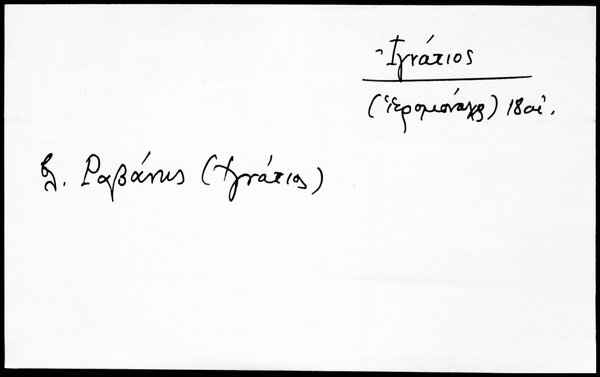 Ἰγνάτιος
(ἱερομόναχος) 18 αἰ.
βλ. Ραβάνης (Ἰγνάτιος)